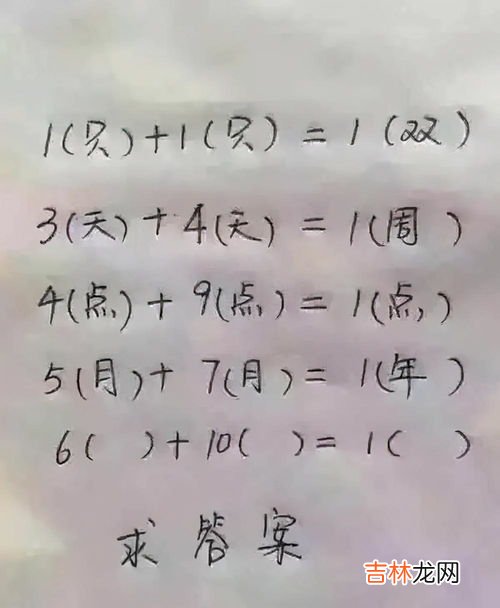 1(只)+1(只)=1(双)
3(天)+4(天)=1(周)
4(点)+9(点)=1(点)
5(月)+7(月)=1(年)
6( )+10( )=1( )
求答案
吉林龙网